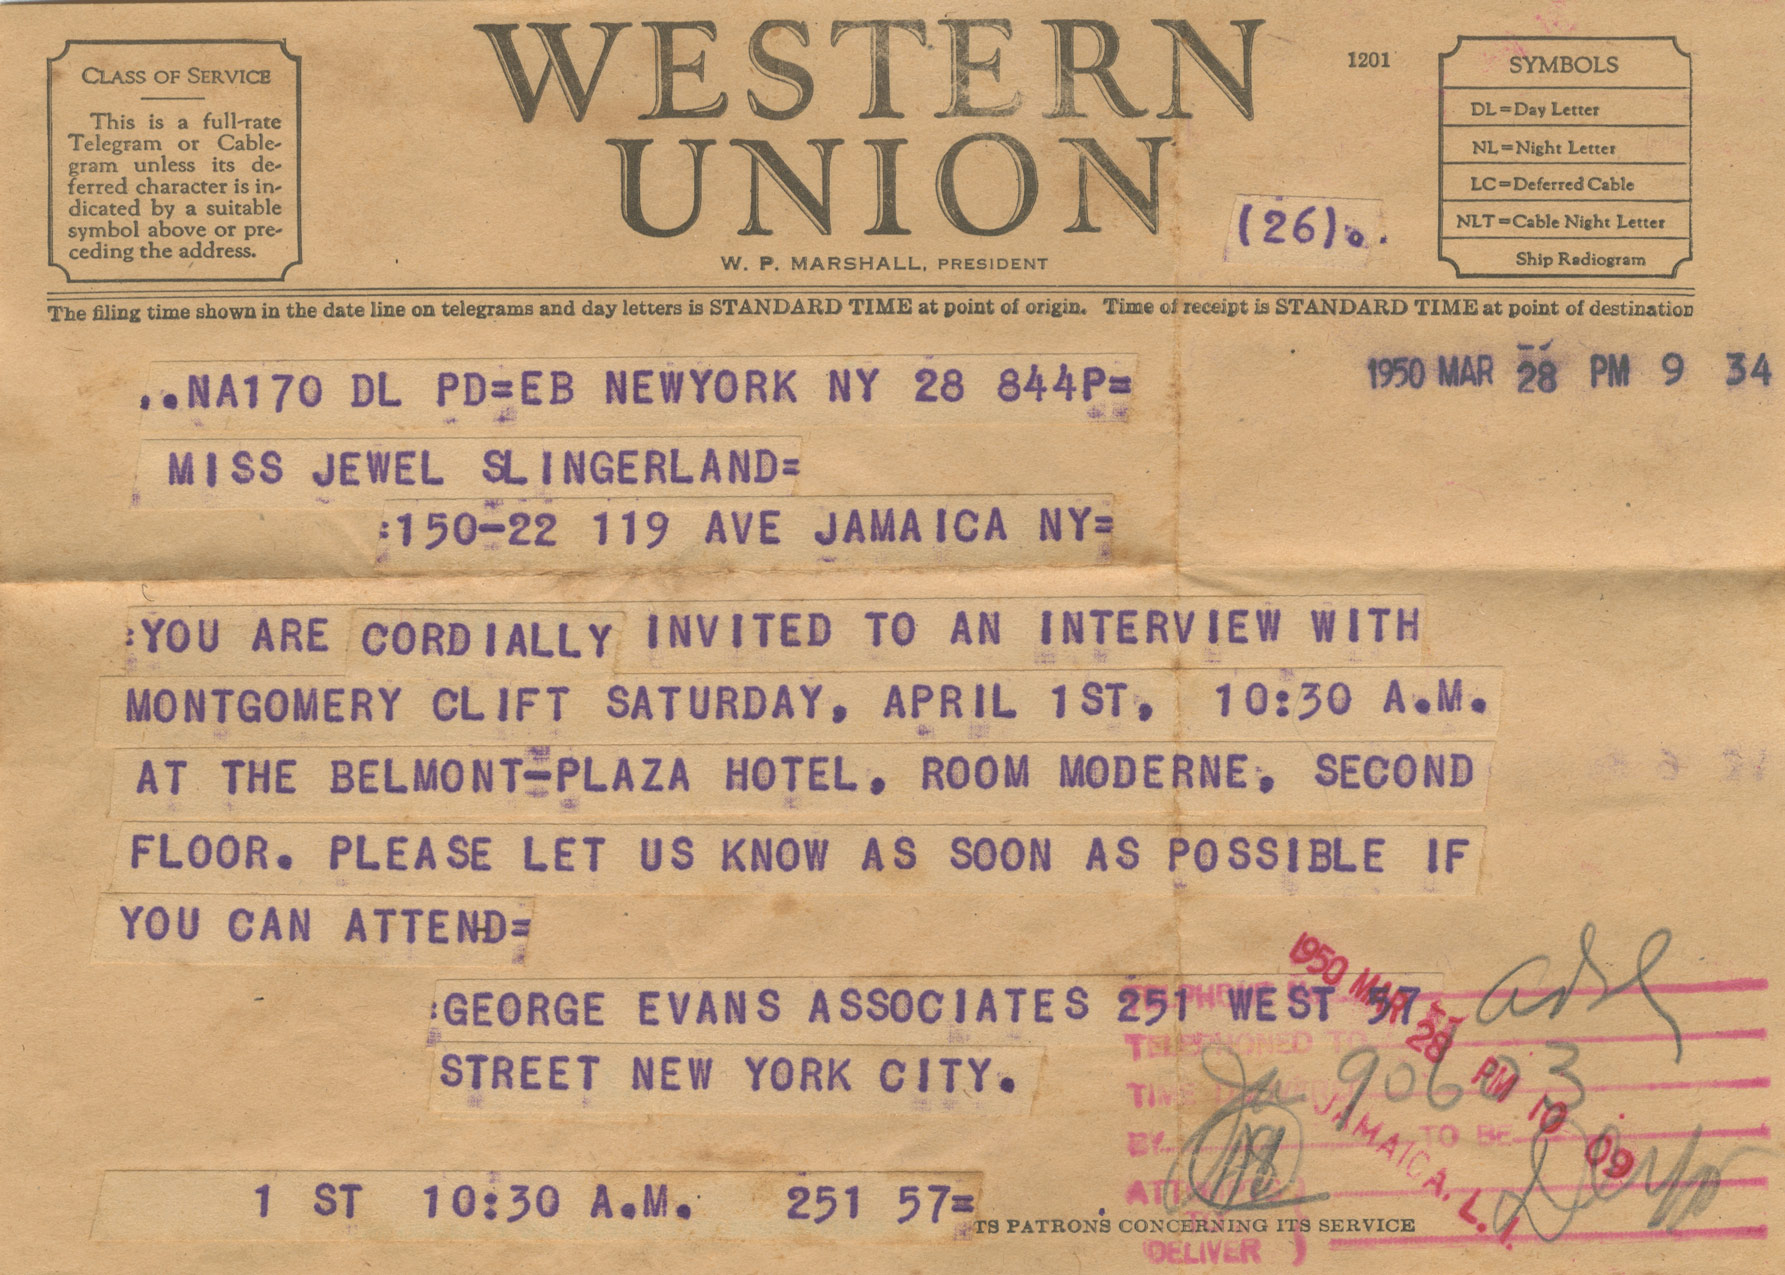 CLASS OF SERVICE
This is a full-rate
Telegram or Cable-
gram unless its de-
ferred character is in-
dicated by a suitable
symbol above or pre-
ceding the address.
WESTERN
UNION
W. P. MARSHALL, PRESIDENT
1201
(26)..
SYMBOLS
DL=Day Letter
NL=Night Letter
LC=Deferred Cable
NLT=Cable Night Letter
Ship Radiogram
The filing time shown in the date line on telegrams and day letters is STANDARD TIME at point of origin. Time of receipt is STANDARD TIME at point of destination
1950 MAR 28 PM 9 34
..NA170 DL PD=EB NEWYORK NY 28 844P=
MISS JEWEL SLINGERLAND=
:150-22 119 AVE JAMAICA NY=
:YOU ARE CORDIALLY INVITED TO AN INTERVIEW WITH
MONTGOMERY CLIFT SATURDAY, APRIL 1ST, 10:30 A.M.
AT THE BELMONT-PLAZA HOTEL, ROOM MODERNE, SECOND
FLOOR. PLEASE LET US KNOW AS SOON AS POSSIBLE IF
YOU CAN ATTEND=
:GEORGE EVANS ASSOCIATES 251 WEST 57
STREET NEW YORK CITY.
1 ST 10:30 A.M. 251 57=
TS PATRONS CONCERNING ITS SERVICE
1950 MAR 28 PM 10 09
JAMAICA, L. I.
TELEPHONED TO
90603
BY
TO BE
DELIVER